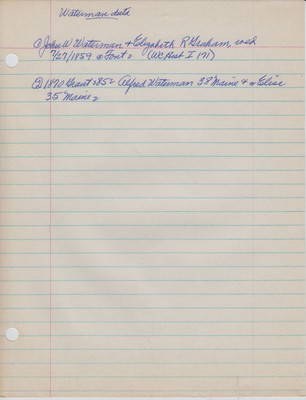 Waterman data
① John W Waterman + Elizabeth R Graham, wed
7/27/1859 @ Font. (WC Hist I 171)
② 1870 Grant > 852 Alfred Waterman 38 Maine + w Elise
35 Maine